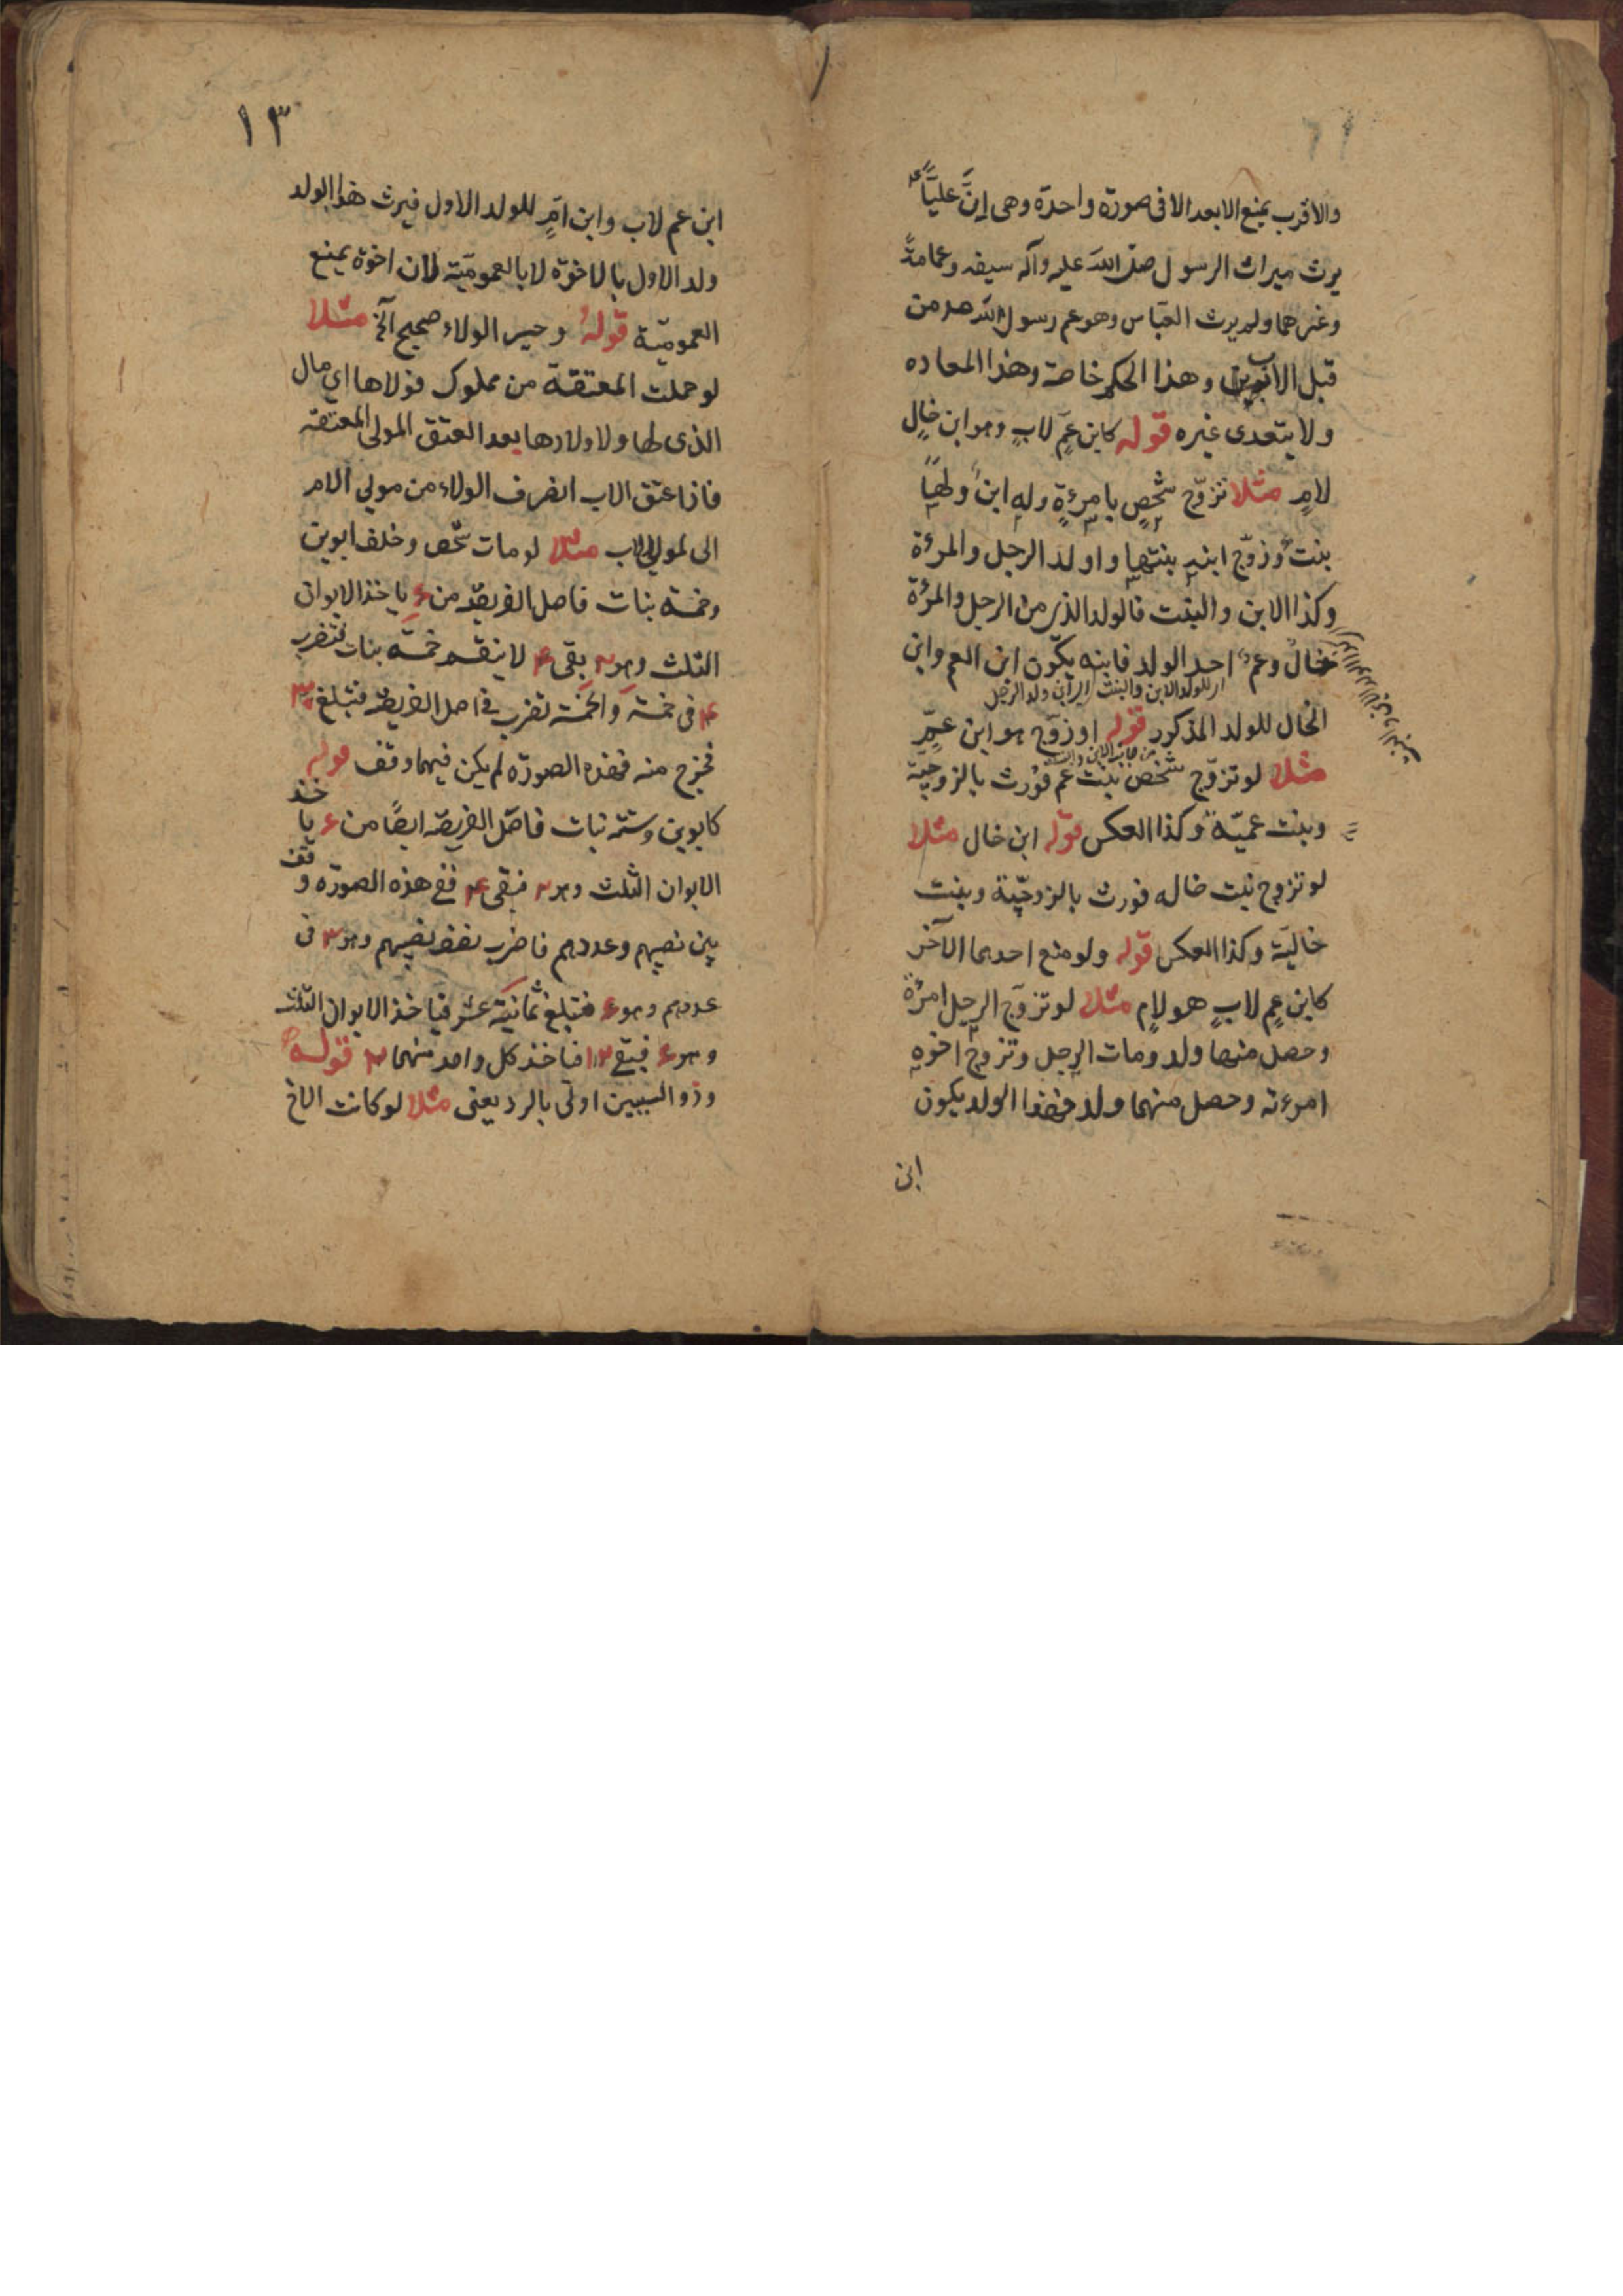 والاقرب يمنع الابعد الا فى صورة واحدة وهى إنّ عليّاً ع
يرث ميراث الرسول صلى الله عليه وآله سيفه وعمامةً
وغيرهما ولم يرث العبّاس وهو عم رسول الله من
قبل الاب وهذا الحكم خاصة وهذا المعاده
ولا يتعدى غيره قوله كابن عمٍّ لابٍ وهو ابن خالٍ
لامٍ مثلا تزوّج شخصٍ بامرءةٍ وله ابنٌ ولها
بنتٌ وزوّج ابنه بنتها واولد الرجل والمرءة
وكذا الابن والبنت فالولد الذى من الرجل والمرءة
خالٌ وعمٌ احد الولد فابنه يكون ابن العم وابن
اى للولد الابن والبنت اى ابن ولد الرجل
الخال للولد المذكور قوله او زوّج هو ابن عمٍّ
مثلا لو تزوّج شخص بنت عم فورث بالزوجيّة
وبنت عميّة وكذا العكس قوله ابن خال مثلا
لو تزوج بنت خاله فورث بالزوجيّة وبنت
خاليّة وكذا العكس قوله ولو منع احدهما الآخر
كابن عمٍ لابٍ هو لامٍ مثلا لو تزوّج الرجل امرءة
وحصل منها ولد ومات الرجل وتزوج اخوه
امرءته وحصل منهما ولد فهذا الولد يكون
ابن
١٣
ابن عم لاب وابن امٍّ للولد الاول فيرث هذا الولد
ولد الاول بالاخوّة لا بالعموميّة لان اخوة يمنع
العموميّة قوله وجير الولاء صحيح الخ مثلا
لو حملت المعتقة من مملوك فولاها اى مال
الذى لها ولاولادها بعد العتق المولى المعتقه
فاذا عتق الاب انصرف الولاء من مولى الام
الى لمولى الاب مثلا لو مات شخص وخلف ابوين
وخمسة بنات فاصل الفريضة من ٤ ياخذ الابوان
الثلث وهو ٢ بقى ٤ لا ينقسم خمسة بنات فتضرب
٤ فى خمسة والخمسة تضرب فى اصل الفريضة فتبلغ ٣٠
فخرج منه فهذه الصورة لم يكن فيهما وقف قوله
كابوين وستة بنات فاصل الفريضة ايضاً من ٤ ياخذ
الابوان الثلث وهو ٢ فبقى ٤ ففى هذه الصورة وقف
بين نصيبهم وعددهم فاضرب نصف نصيبهم وهو ٣ فى
عددهم وهو ٤ فتبلغ ثمانية عشر فياخذ الابوان الثلث
وهو ٤ فبقى ١٢ فياخذ كل واحد منهما ٢ قوله
وذو السببين اولى بالرد يعنى مثلا لو كانت الاخ